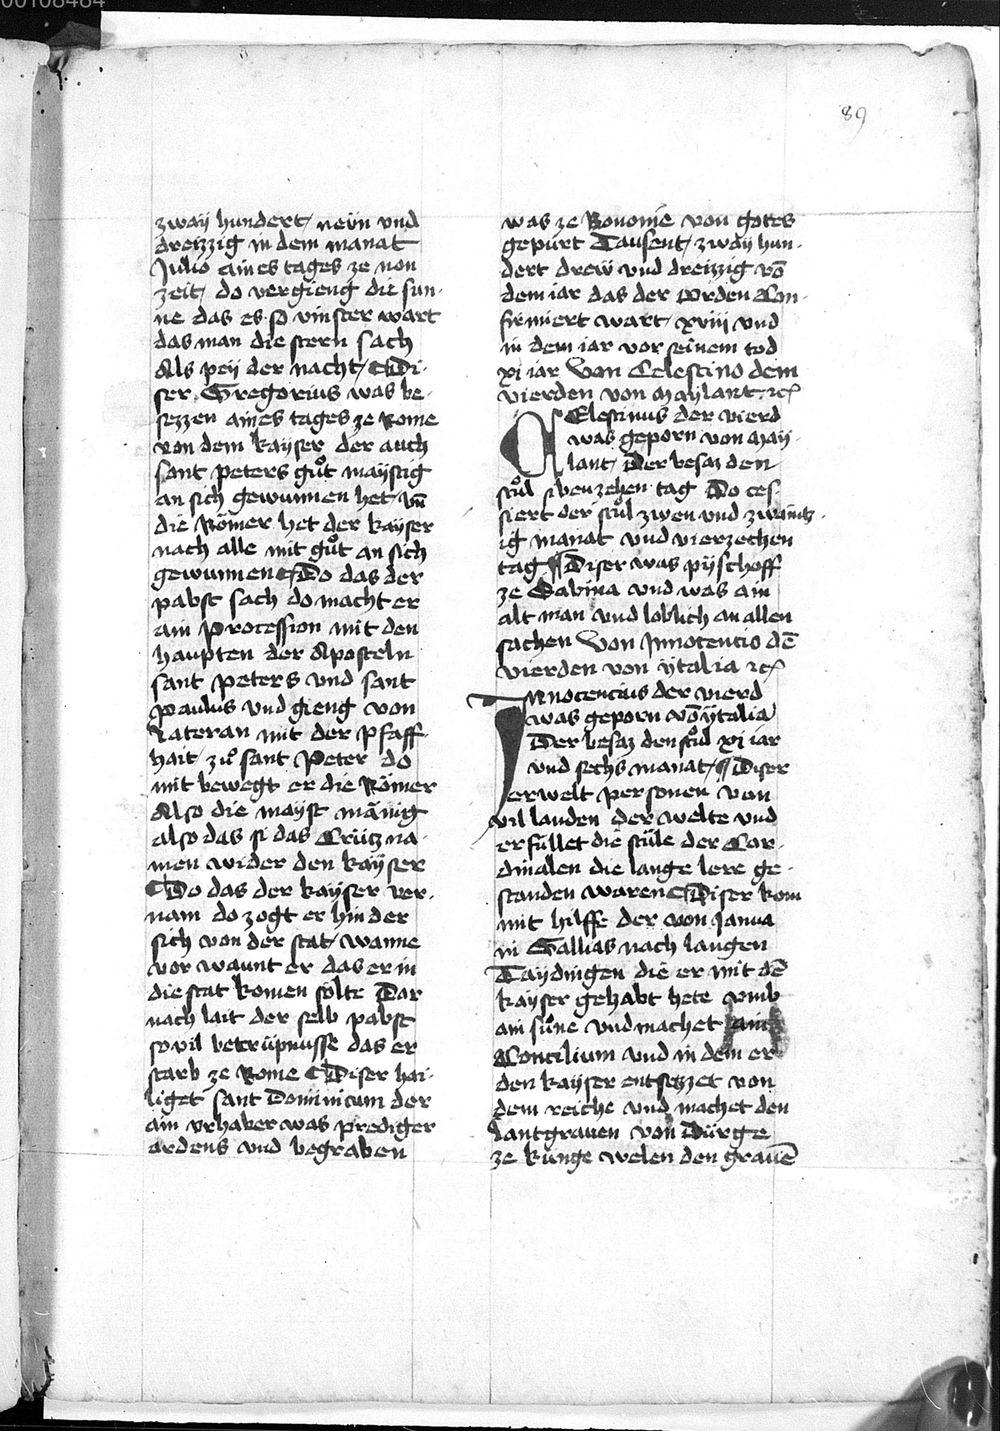 00108484
89
zwaÿ hundert / neün vnd
dreizzig in dem manat
Julio aines tages ze non
zeit / do vergieng die sun-
ne das es so vinster wart
das man die stern sach
Als peÿ der nacht / ¶ Di-
ser Gregorius was be-
sezzen aines tages ze Rome
von dem kayser der auch
sant peters guͦt maÿstig
an sich gewunnen het vn̄
die Römer het der kayser
nach alle mit guͦt an sich
gewunnen ¶ Do das der
pabst sach do macht er
ain procession mit den
haupten der Aposteln
sant peters vnd sant
paulus vnd gieng von
Lateran mit der pfaff
hait / zuͦ sant Peter do
mit bewegt er die Römer
Also die mayst mänig
also das si das Crütz na-
men wider den kaÿser
¶ Do das der kayser ver-
nam do zogt er hinder
sich von der stat / wanne
vor waunt er das er in
die stat komen sölte Dar
nach lait der selb pabst
so vil betrüpnusse das er
starb ze Rome ¶ Diser hai-
liget sant Dominicum der
ain vrhaber was prediger
ordens vnd begraben
was ze Bononie von gotes
gepurt Tausent / zwaÿ hun-
dert dreẅ vnd dreizzig vō
dem iar das der orden Con-
firmiert wart / xviii vnd
in dem iar vor seinem tod
xi iar Von Celestino dem
vierden von Maylant ⁊cͣ
CElestinus der vierd
was geporn von May-
lant / Der besaz den
stuͦl siben zehen tag Do ces-
siert der stuͦl zwen vnd zwaintz-
ig manat vnd vierzechen
tag ¶ Diser was pÿschoff
ze Sabina vnd was ain
alt man vnd loblich an allen
sachen Von Innotentio dē
vierden von ytalia ⁊cͣ
INnotencius der vierd
was geporn vō ÿtalia
Der besaz den stuͦl xi iar
vnd sechs manat / ¶ Diser
erwelt personen von
vil landen der welte vnd
erfüllet die stüle der Cor-
dinalen die lange lere ge-
standen waren ¶ Diser kom
mit hilffe der von Janua
in Gallias nach langen
Taydingen die er mit dē
kayser gehabt hete vmb
ain suͦne vnd machet ain
Concilium vnd in dem er
den kayser entsezzet von
dem reiche vnd machet den
lantgrauen von Dürge
ze kunge welen den grauē